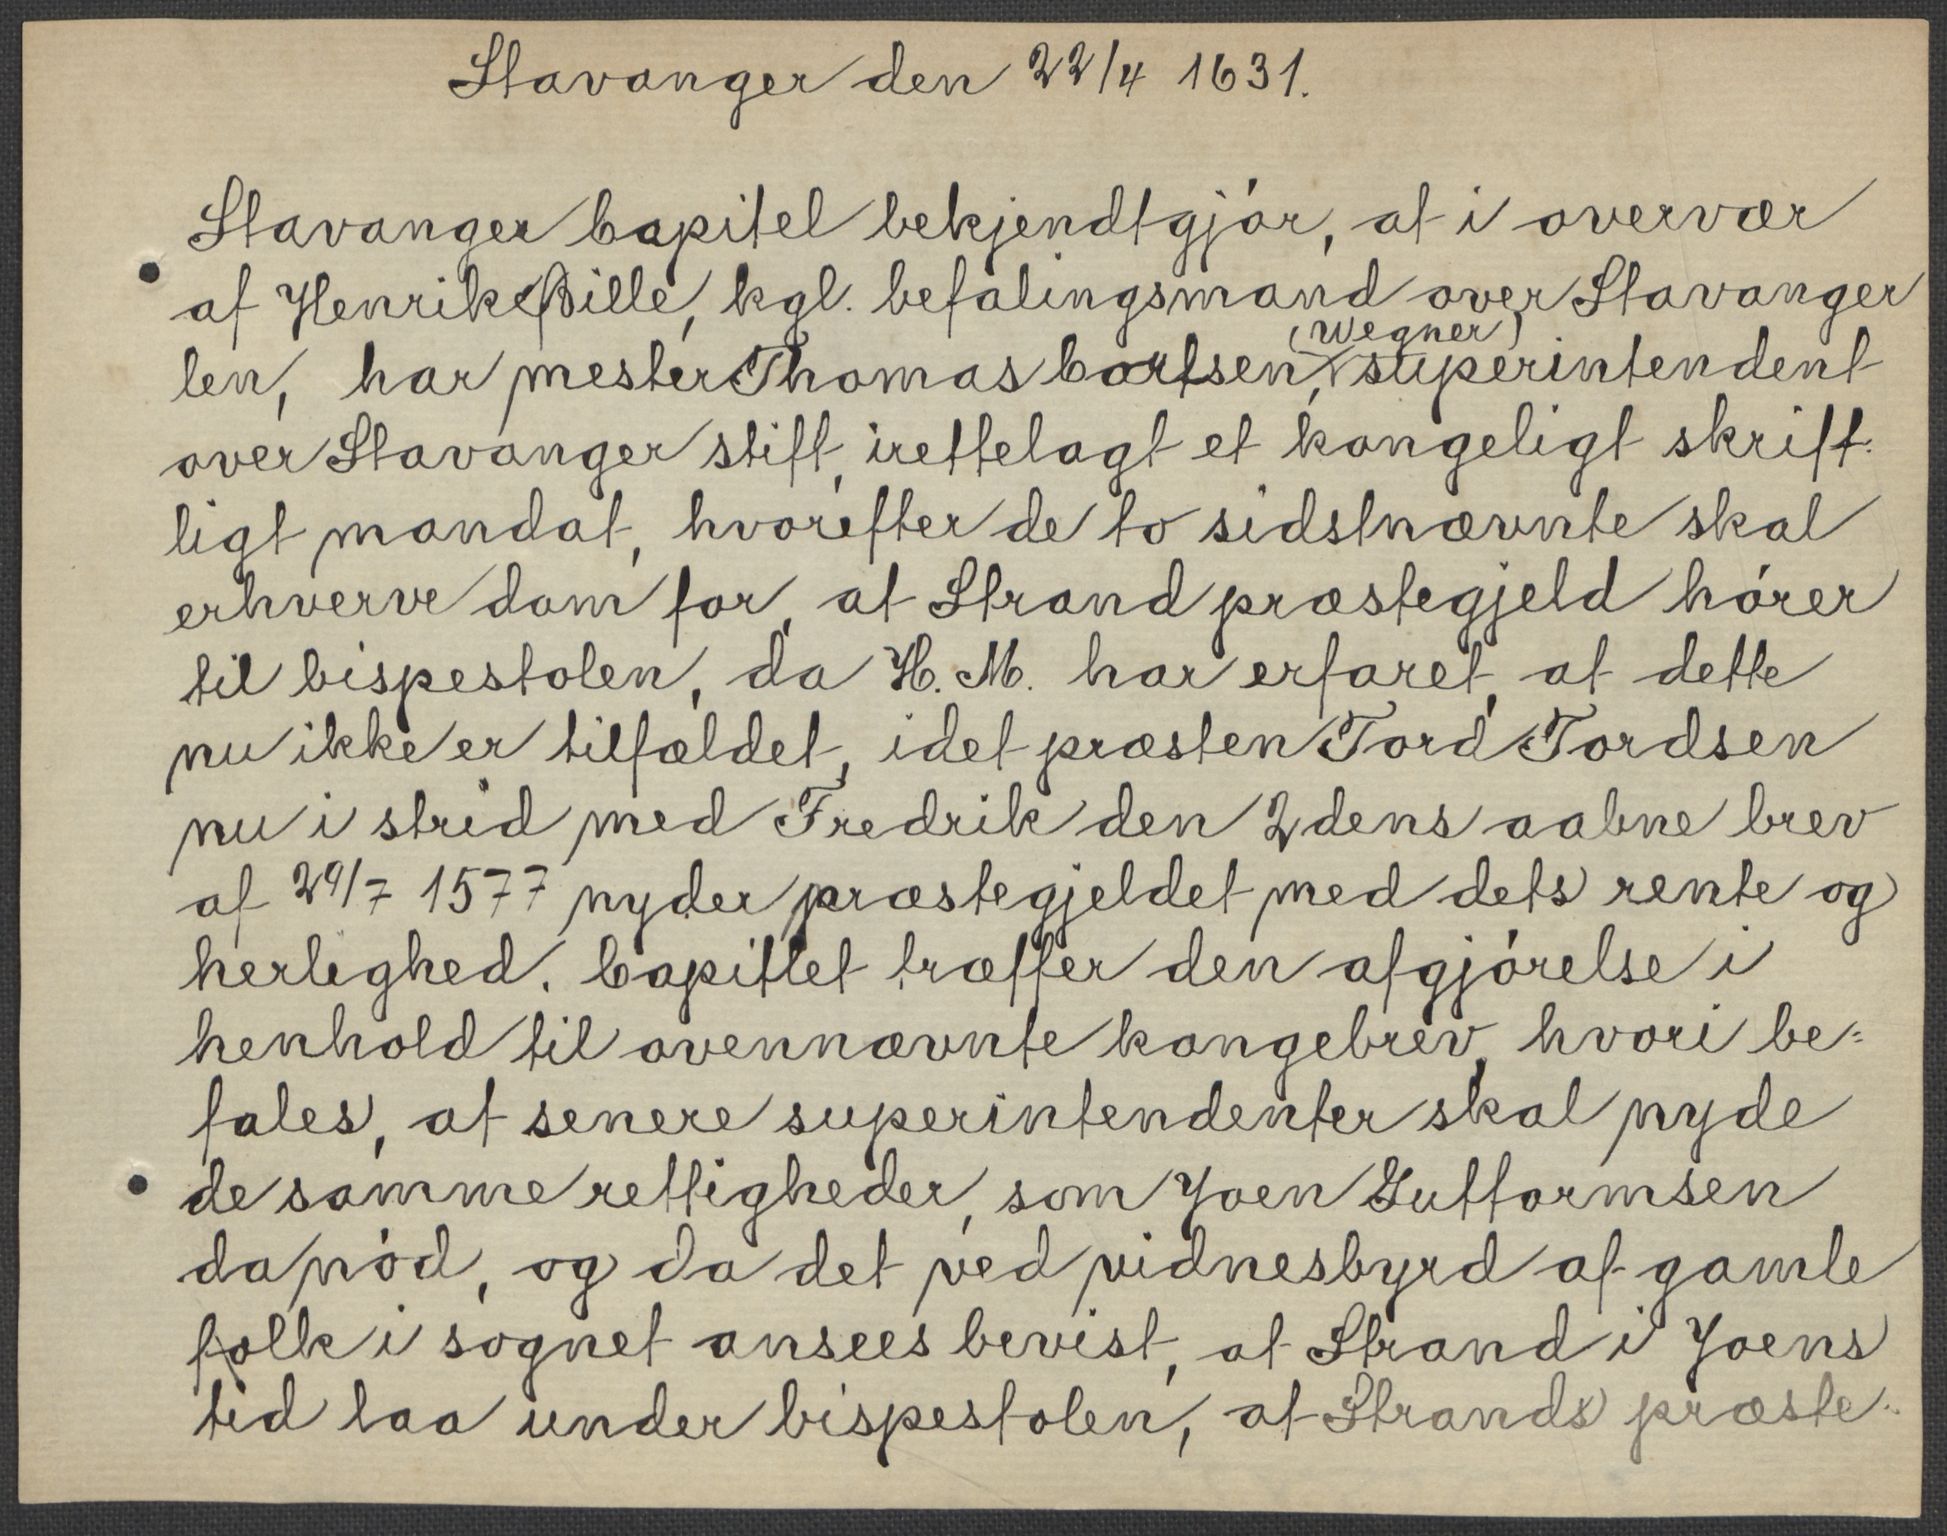 Stavanger den 22/4 1631.
Stavanger Capitel bekjendtgjór, at i overvær
af Henrik Bille, kgl. befalingsmand over Stavanger
len, har mester Thomas Cortsen, (Wegner) superintendent
over Stavanger stift, irettelagt et kongeligt skrift-
ligt mandat, hvorefter de to sidstnævnte skal
erhverve dom for, at Strand præstegjeld hórer
til bispestolen, da H. M. har erfaret, at dette
nu ikke er tilfældet, idet præsten Tord Tordsen
nu i strid med Fredrik den 2dens aabne brev
af 29/7 1577 nyder præstegjeldet med dets rente og
herlighed. Capitlet træffer den afgjórelse i
henhold til ovennævnte kongebrev, hvori be=
fales, at senere superintendenter skal nyde
de samme rettigheder, som Joen Guttormsen
da nód, og da det ved vidnesbyrd af gamle
folk i sognet ansees bevist, at Strand i Joens
tid laa under bispestolen, at Strands præste-